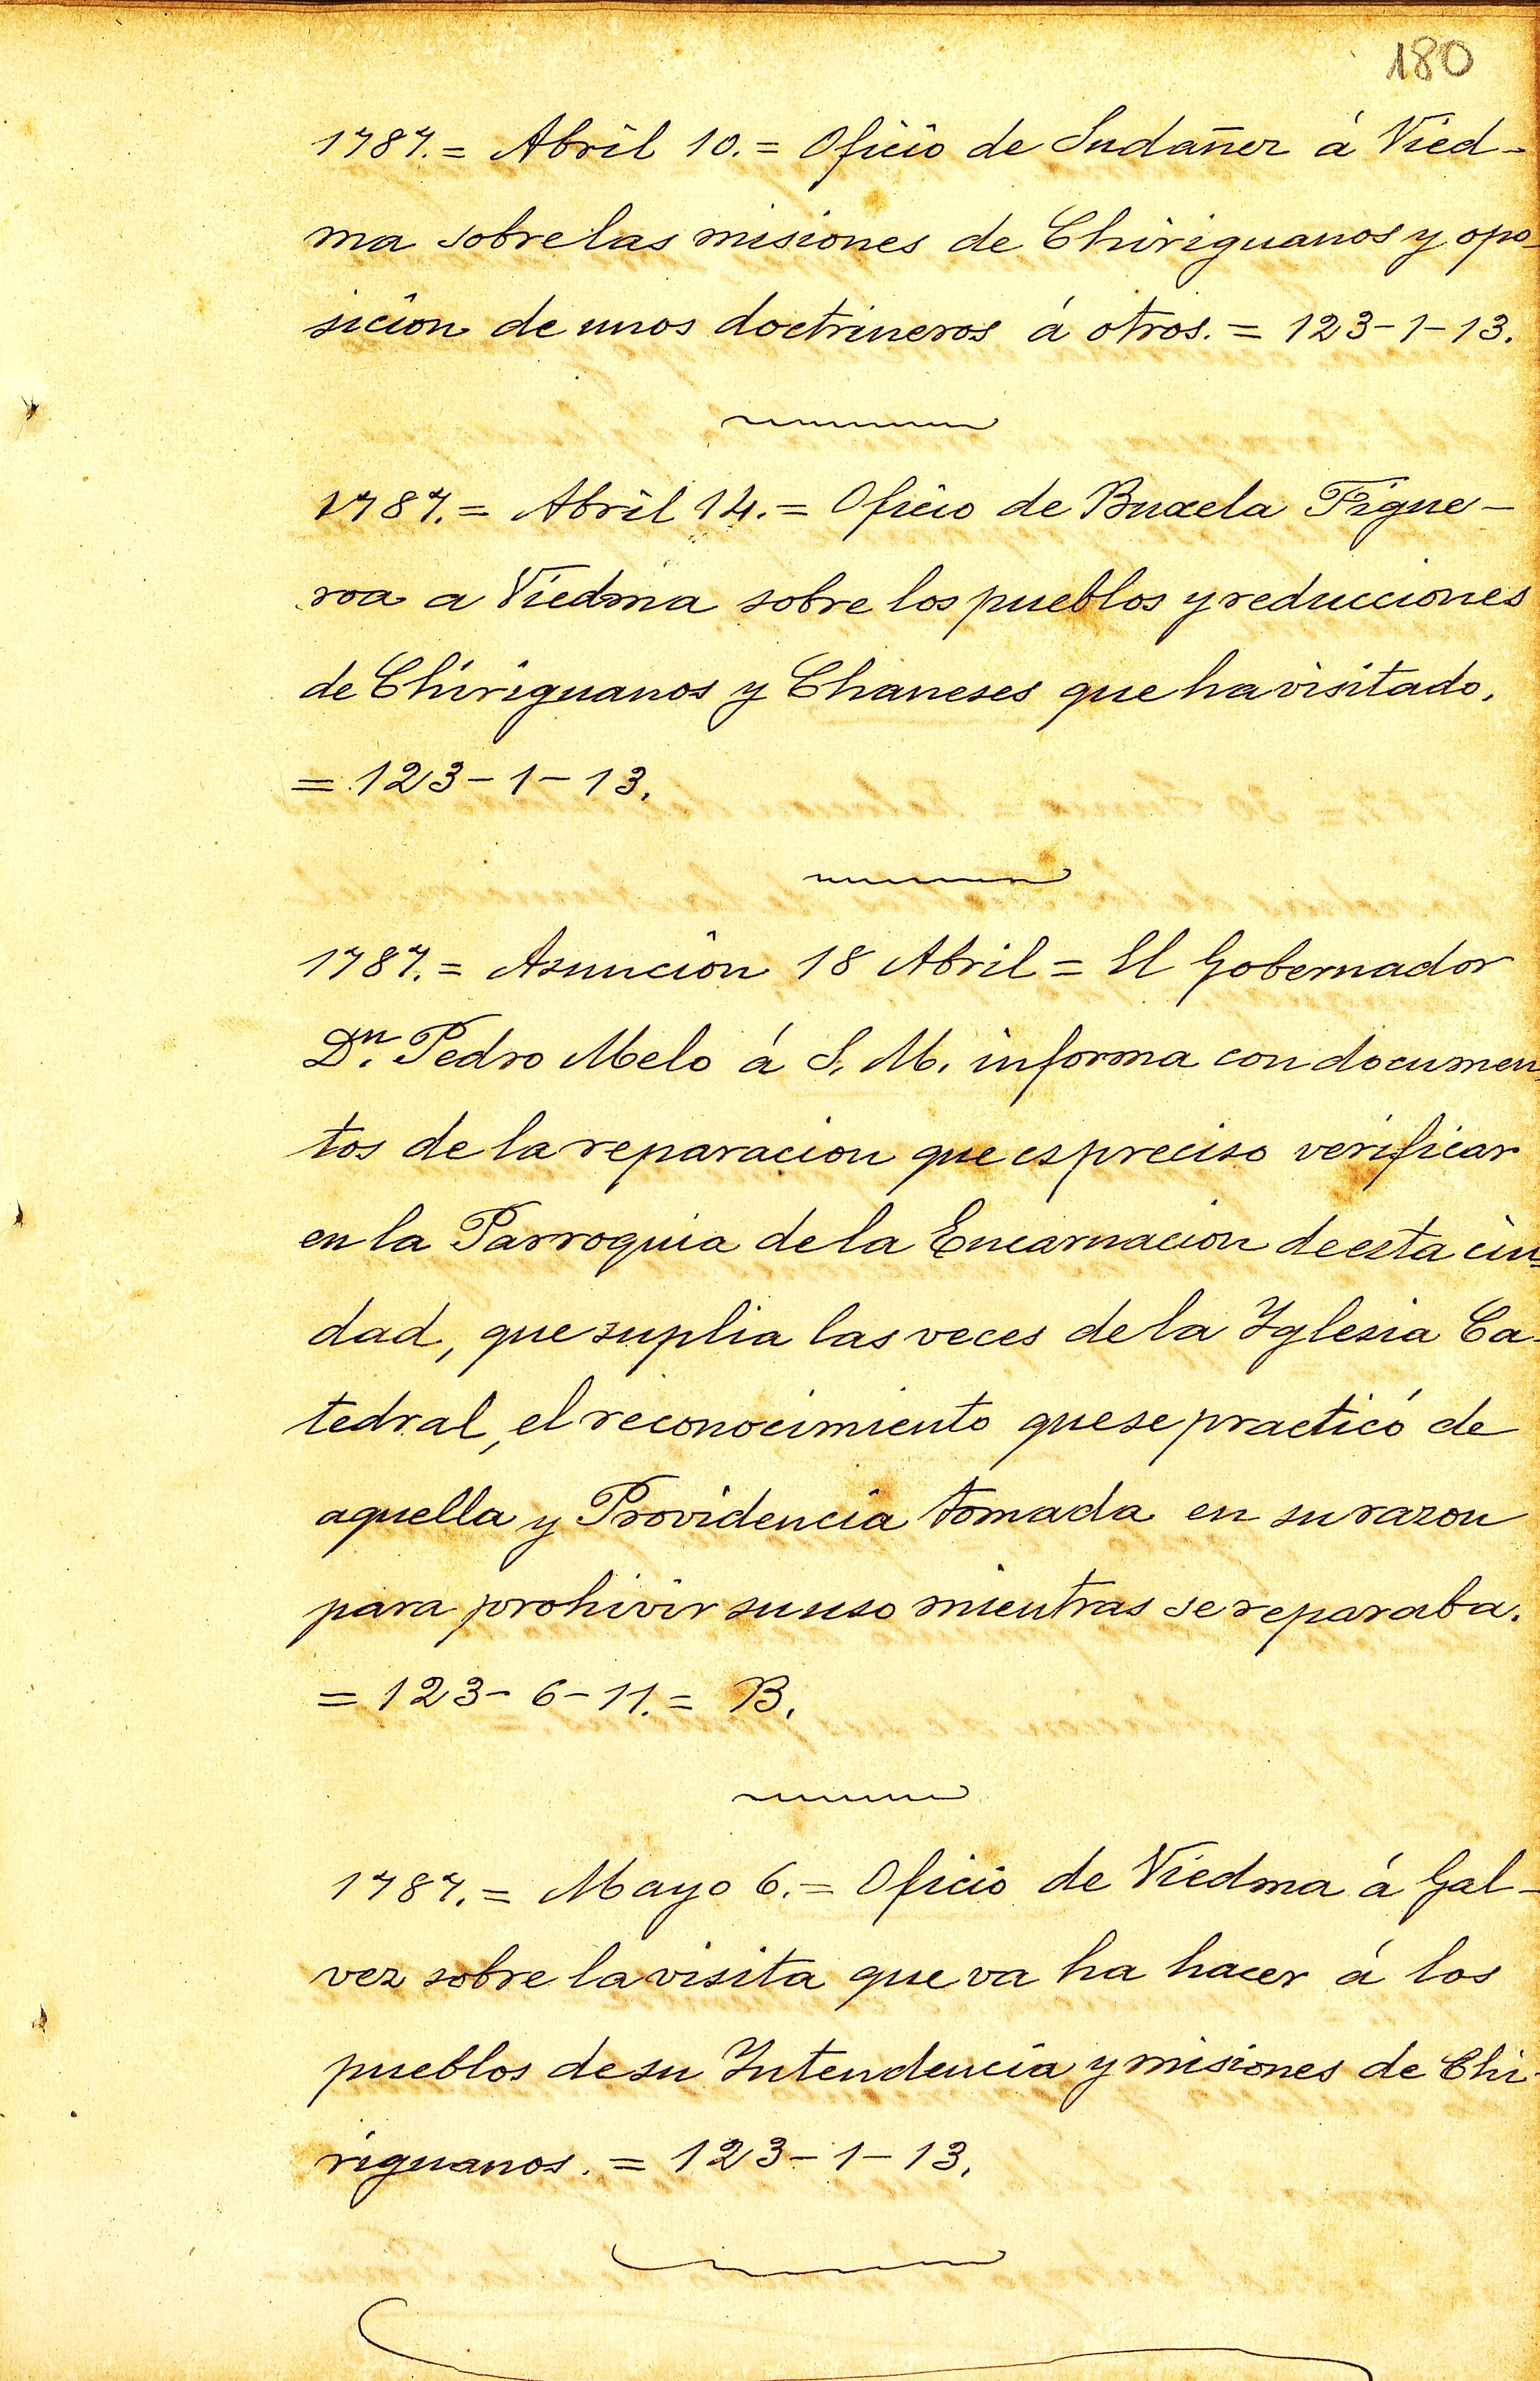 180
1787.= Abril 10.= Oficio de Sudañez á Vied-
ma sobre las misiones de Chiriguanos y opo-
sicion de unos doctrineros á otros. = 123-1-13.
1787.= Abril 14.= Oficio de Buxela Figue-
roa a Viedma sobre los pueblos y reducciones
de Chiriguanos y Chaneses que ha visitado.
= 123-1-13.
1787.= Asuncion 18 Abril = El Gobernador
Dn. Pedro Melo á S. M. informa con documen
tos de la reparacion que es preciso verificar
en la Parroquia de la Encarnacion de esta ciu=
dad, que suplia las veces de la Iglesia Ca-
tedral, el reconocimiento que se practicó de
aquella y Providencia tomada en su razon
para prohivir su uso mientras se reparaba.
= 123-6-11.= B.
1787.= Mayo 6.= Oficio de Viedma á Gal-
vez sobre la visita que va ha hacer á los
pueblos de su Intendencia y misiones de Chi-
riguanos. = 123-1-13.